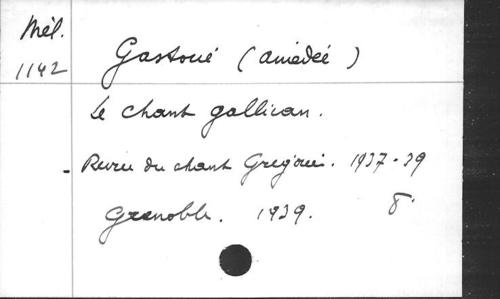 Mél.
1142
Gastoué (Amédée)
Le chant gallican.
- Revue du chant Grégori. 1937-39
Grenoble. 1939. 8°